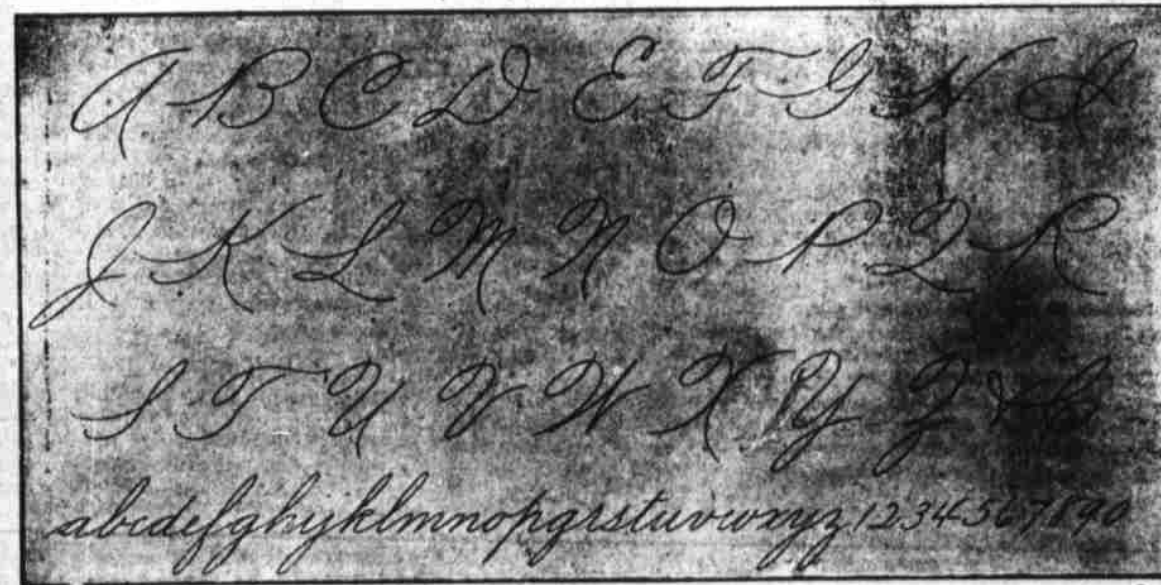 A B C D E F G H I
J K L M N O P Q R
S T U V W X Y Z & Co
abcdefghijklmnopqrstuvwxyz 1234567890